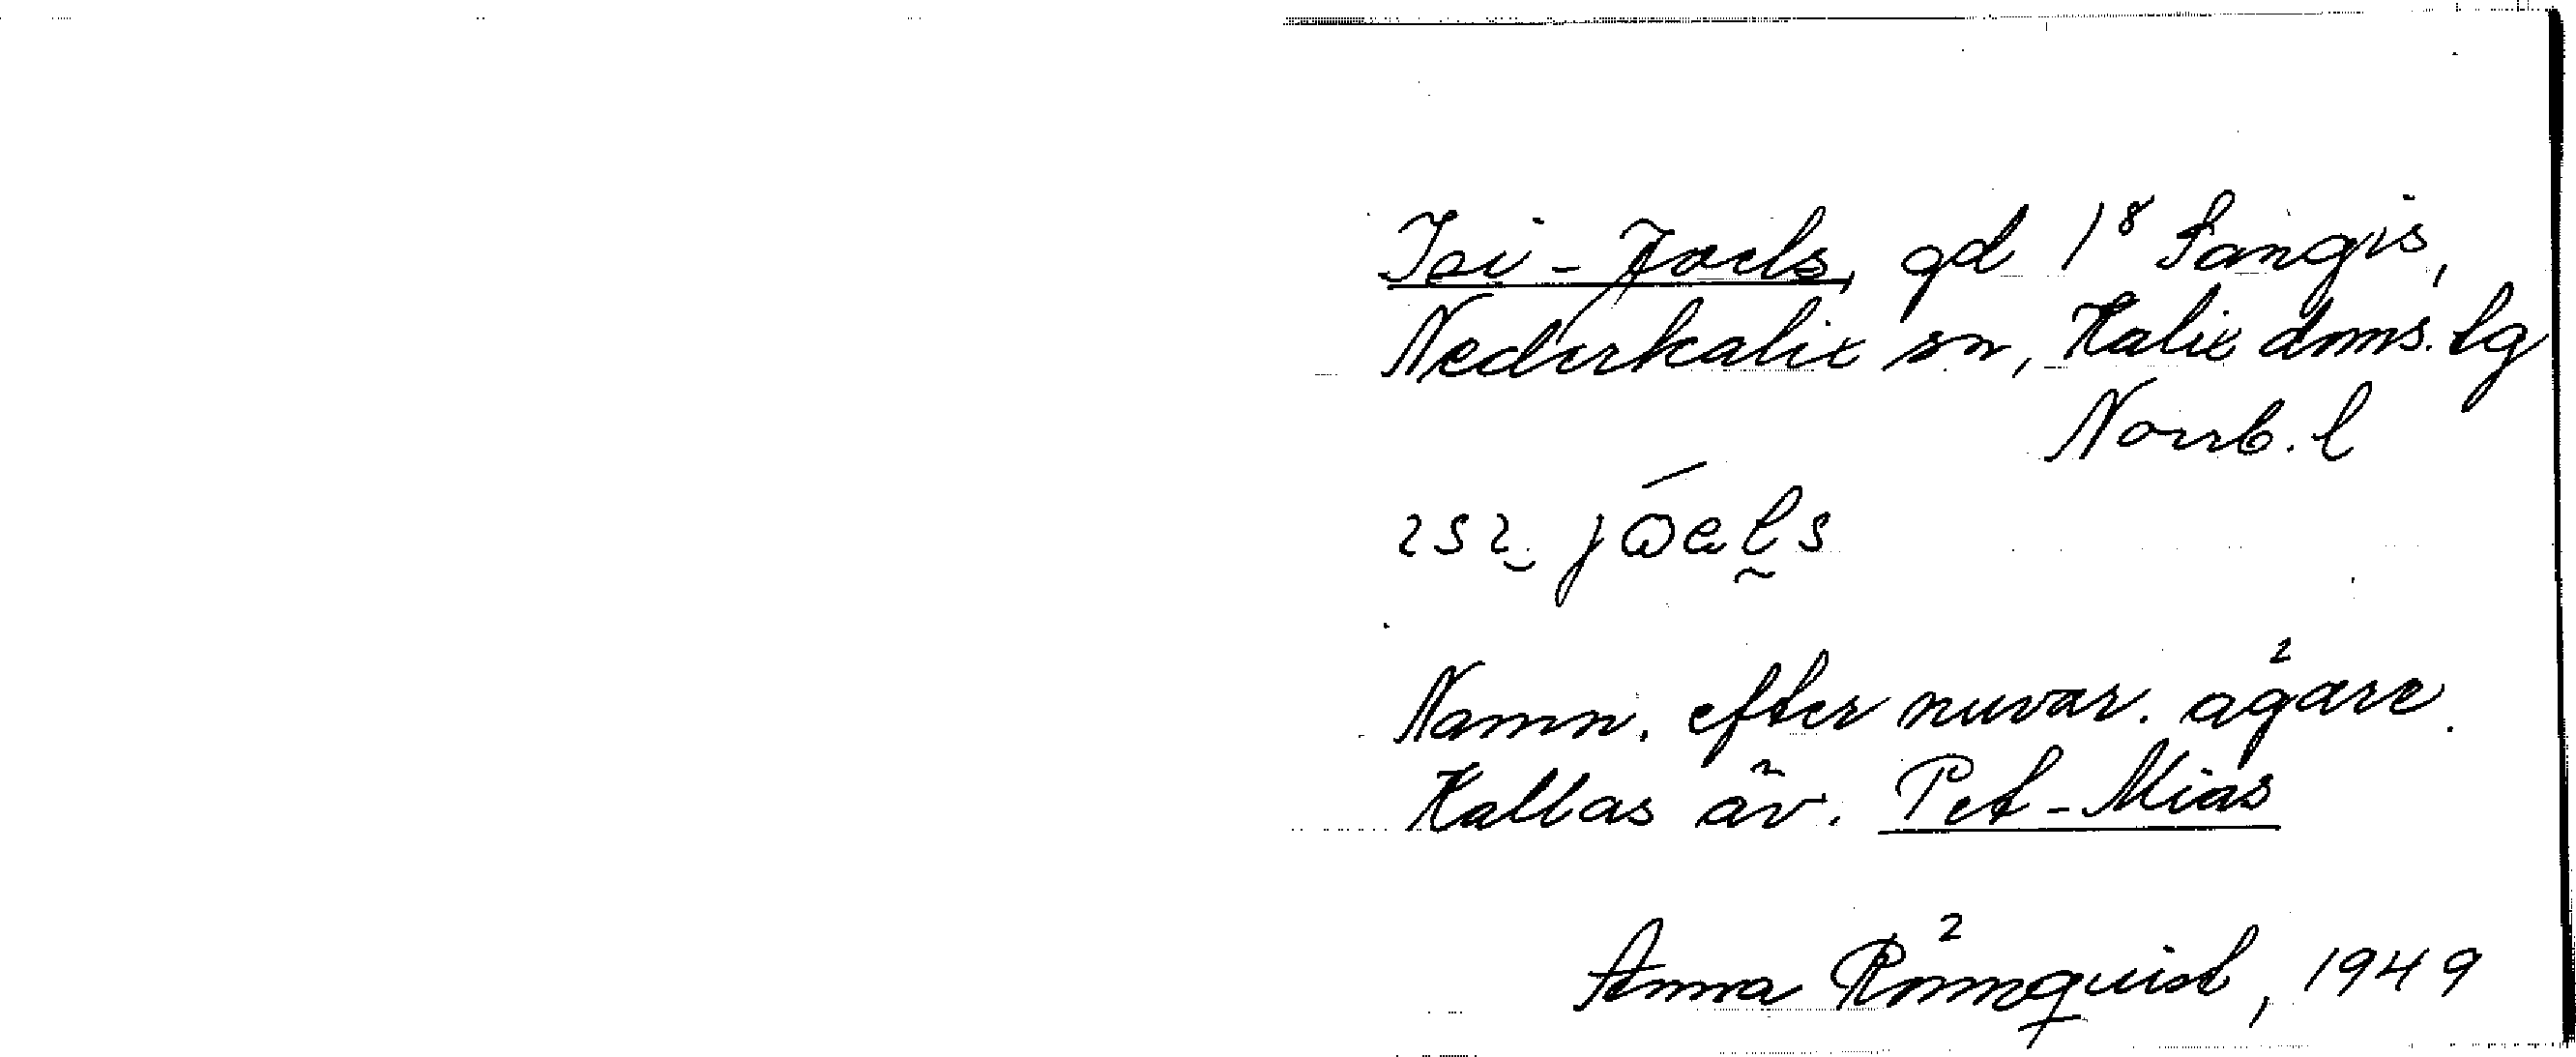 Isi-Joels, gd 1⁸ Sangis,
Nederkalix sn, Kalix dms. lg
Norrb. l
ɩsɩ jóels
Namn. efter nuvar. ägare.
Kallas äv. Pet-Mias
Anna Rönnquist, 1949